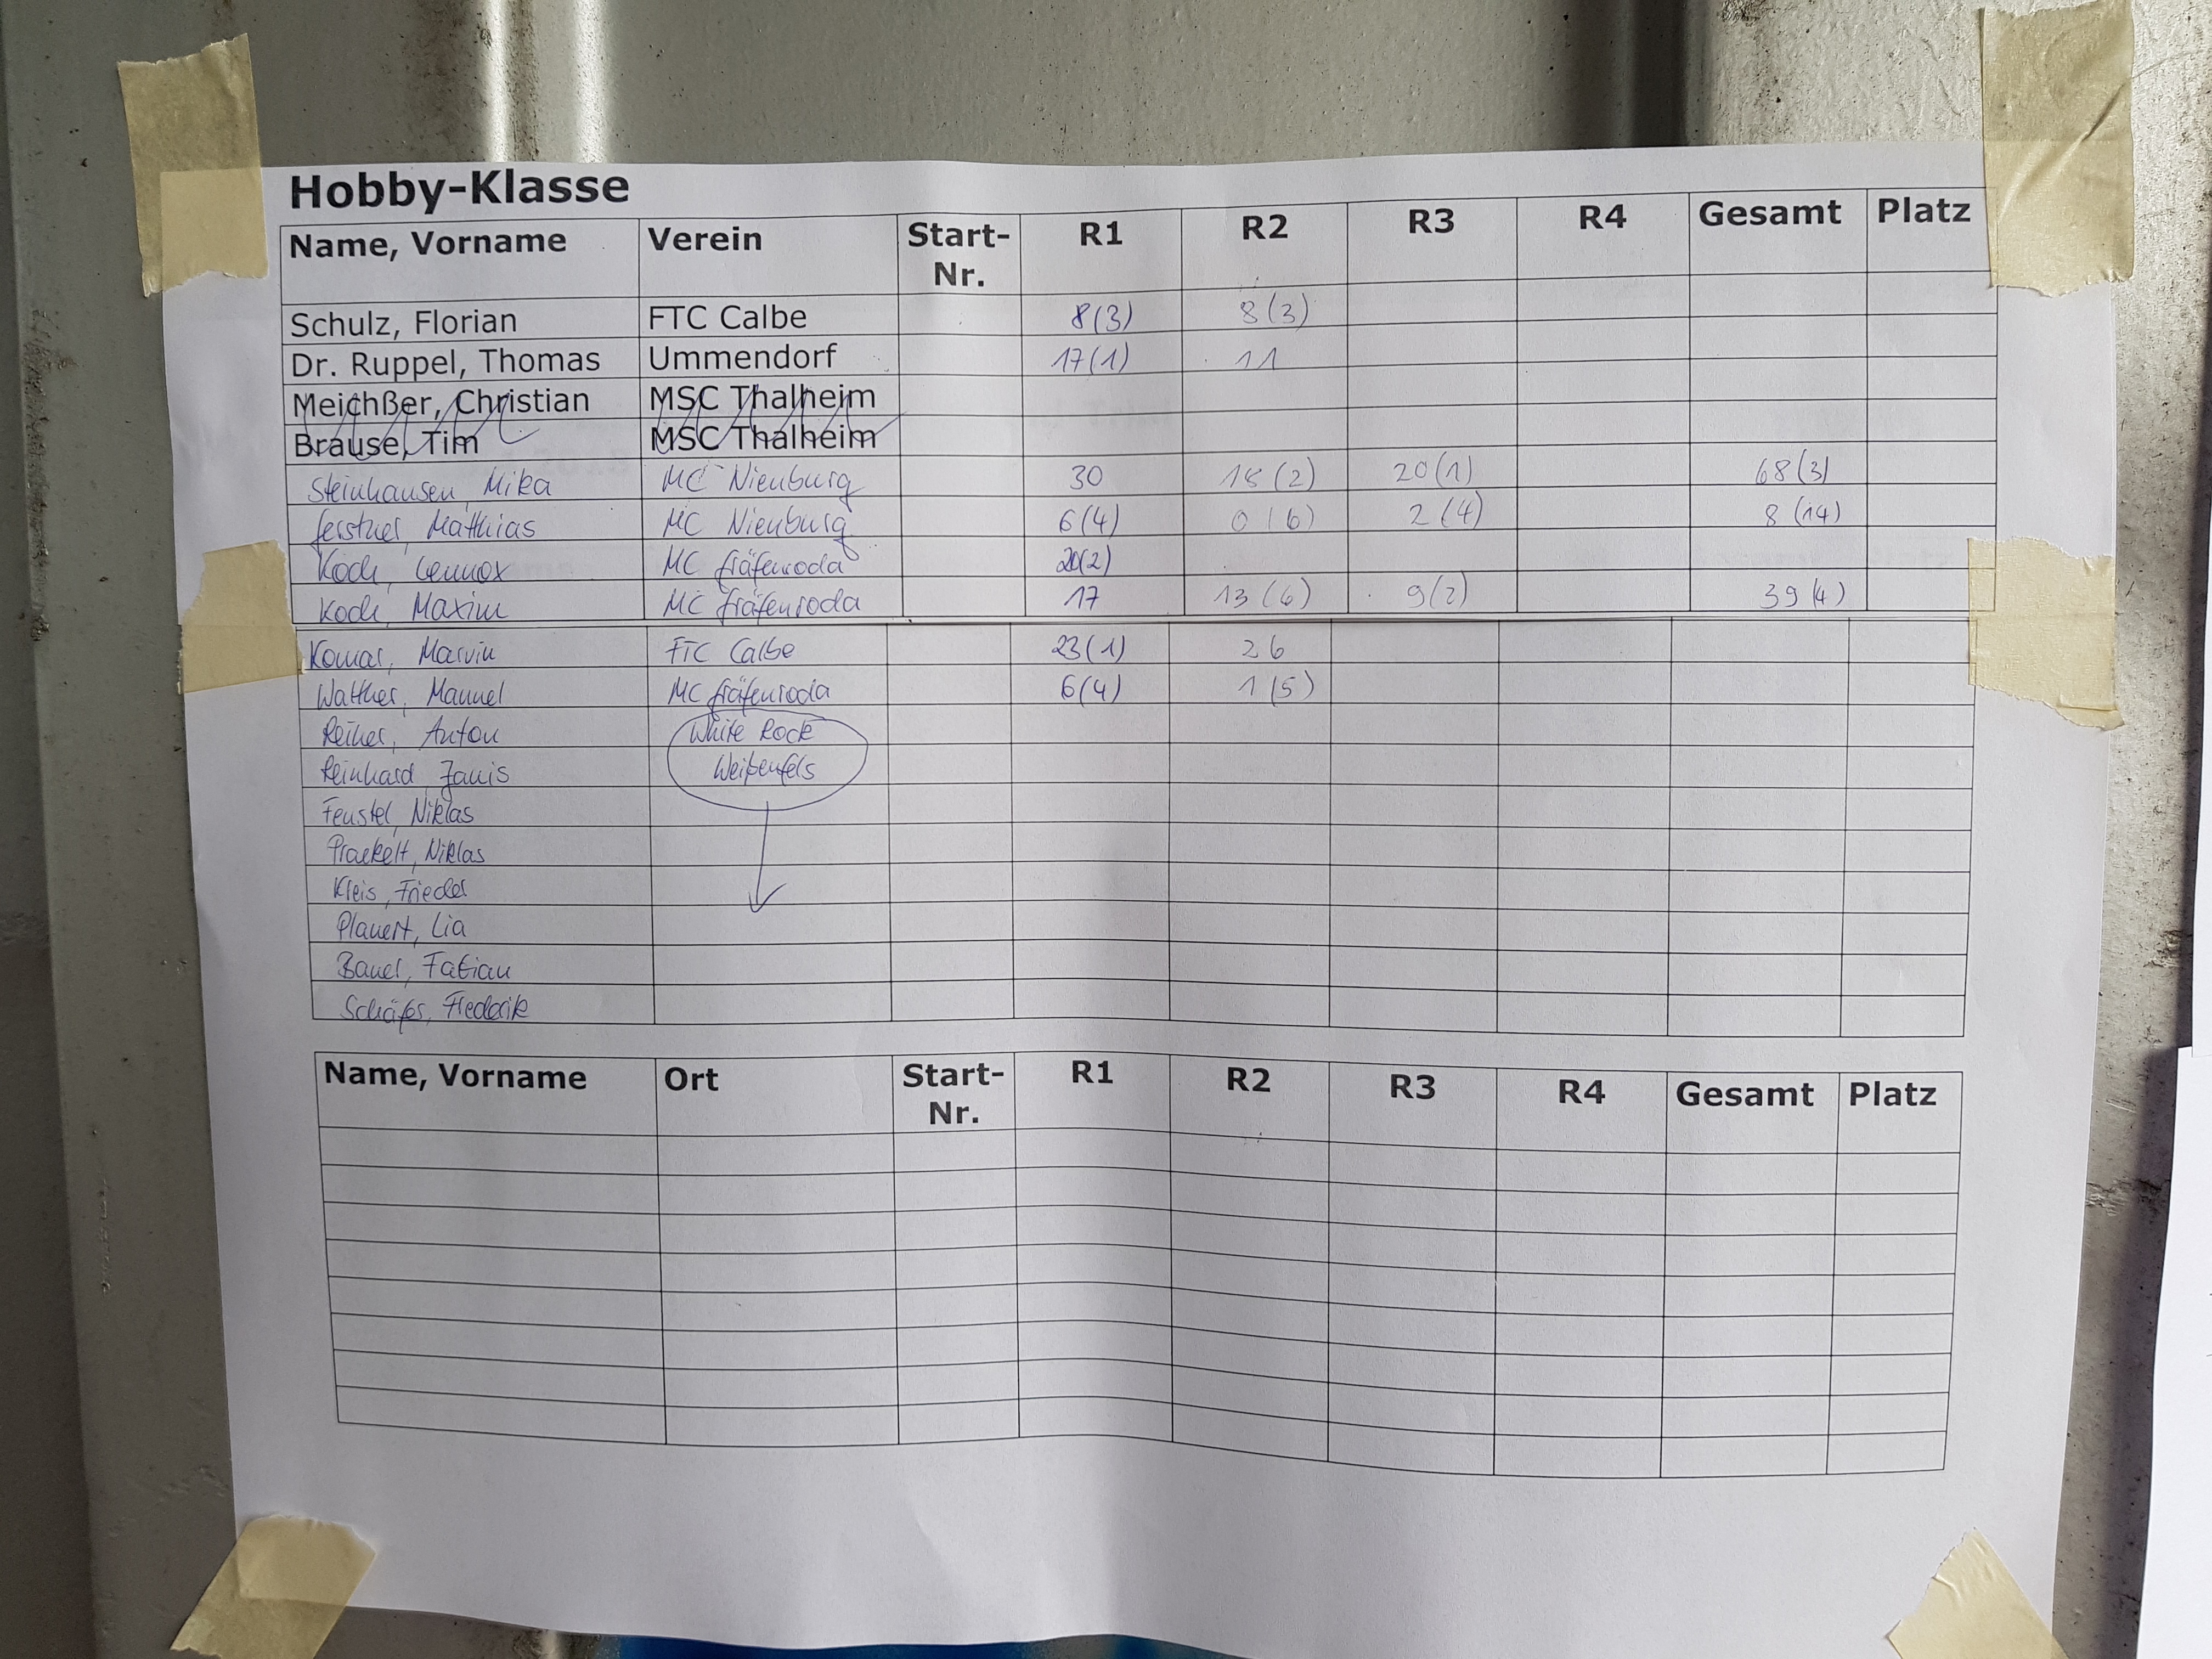 Hobby-Klasse
Name, Vorname Verein Start-Nr. R1 R2 R3 R4 Gesamt Platz
Schulz, Florian FTC Calbe 8(3) 8(3)
Dr. Ruppel, Thomas Ummendorf 17(1) 11
Meichßer, Christian MSC Thalheim
Brause, Tim MSC Thalheim
Steinhausen, Mika MC Nienburg 30 18(2) 20(1) 68(3)
Matthias MC Nienburg 6(4) 0(6) 2(4) 8(14)
Koch, Lennox MC Gräfenroda 20(2)
Koch, Maxim MC Gräfenroda 17 13(6) 9(2) 39(4)
Komar, Marvin FTC Calbe 23(1) 26
Walther, Manuel MC Gräfenroda 6(4) 1(5)
Reiher, Anton White Rock
Reinhard, Janis Weißenfels
Feustel, Niklas
Niklas
Kreis, Frieder
Planert, Lia
Bauer, Fabian
Schäfer, Frederik
Name, Vorname Ort Start-Nr. R1 R2 R3 R4 Gesamt Platz